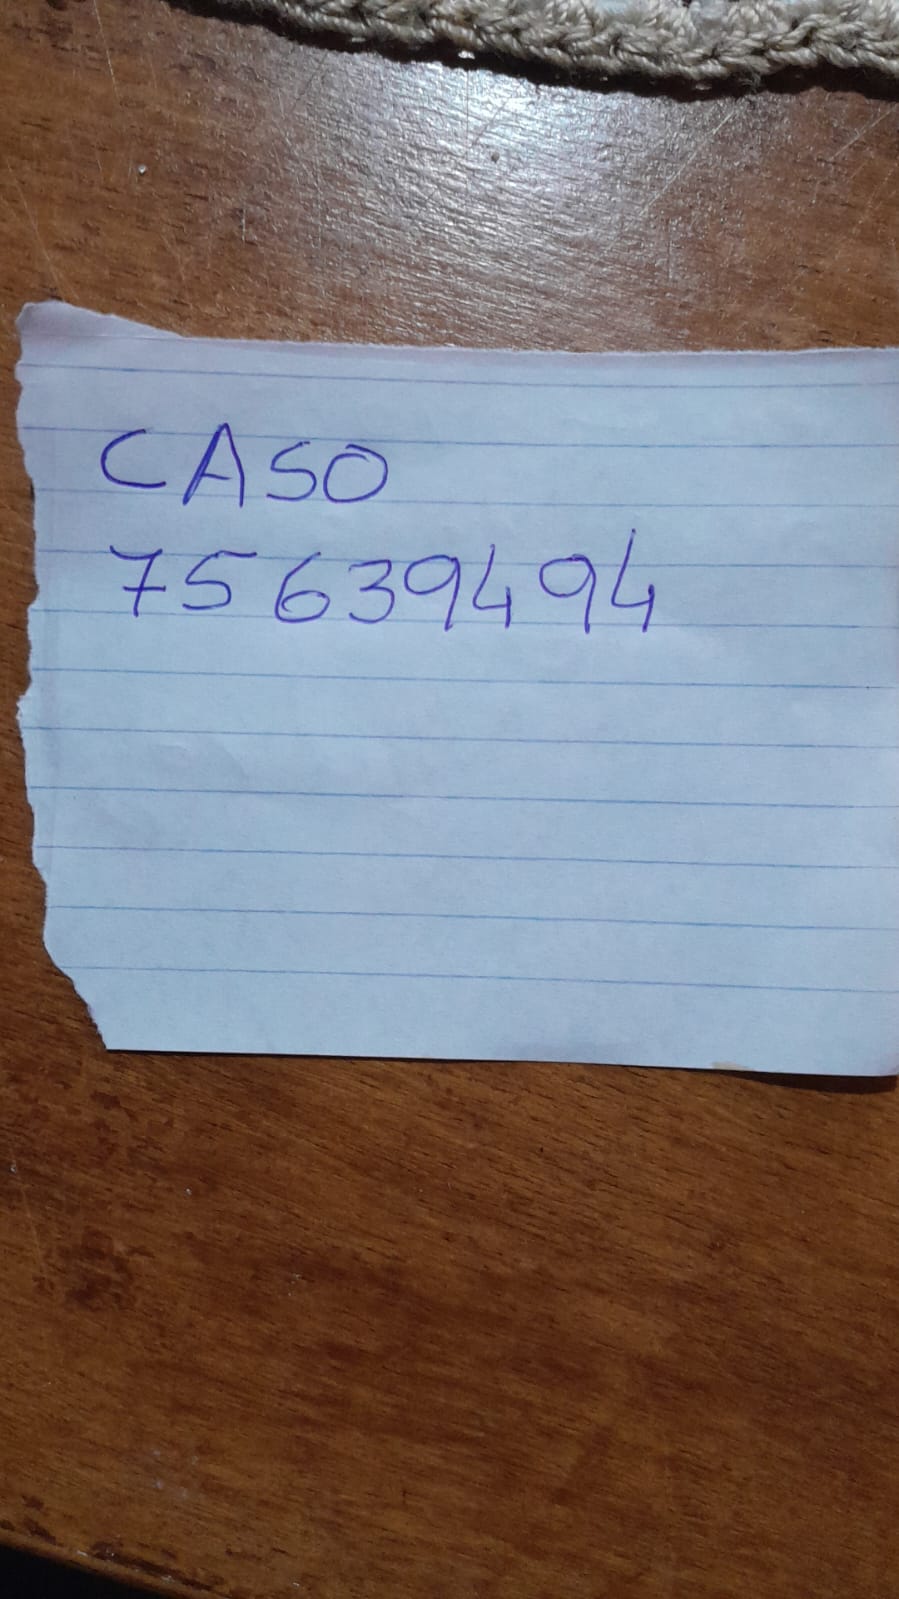 CASO
75639494